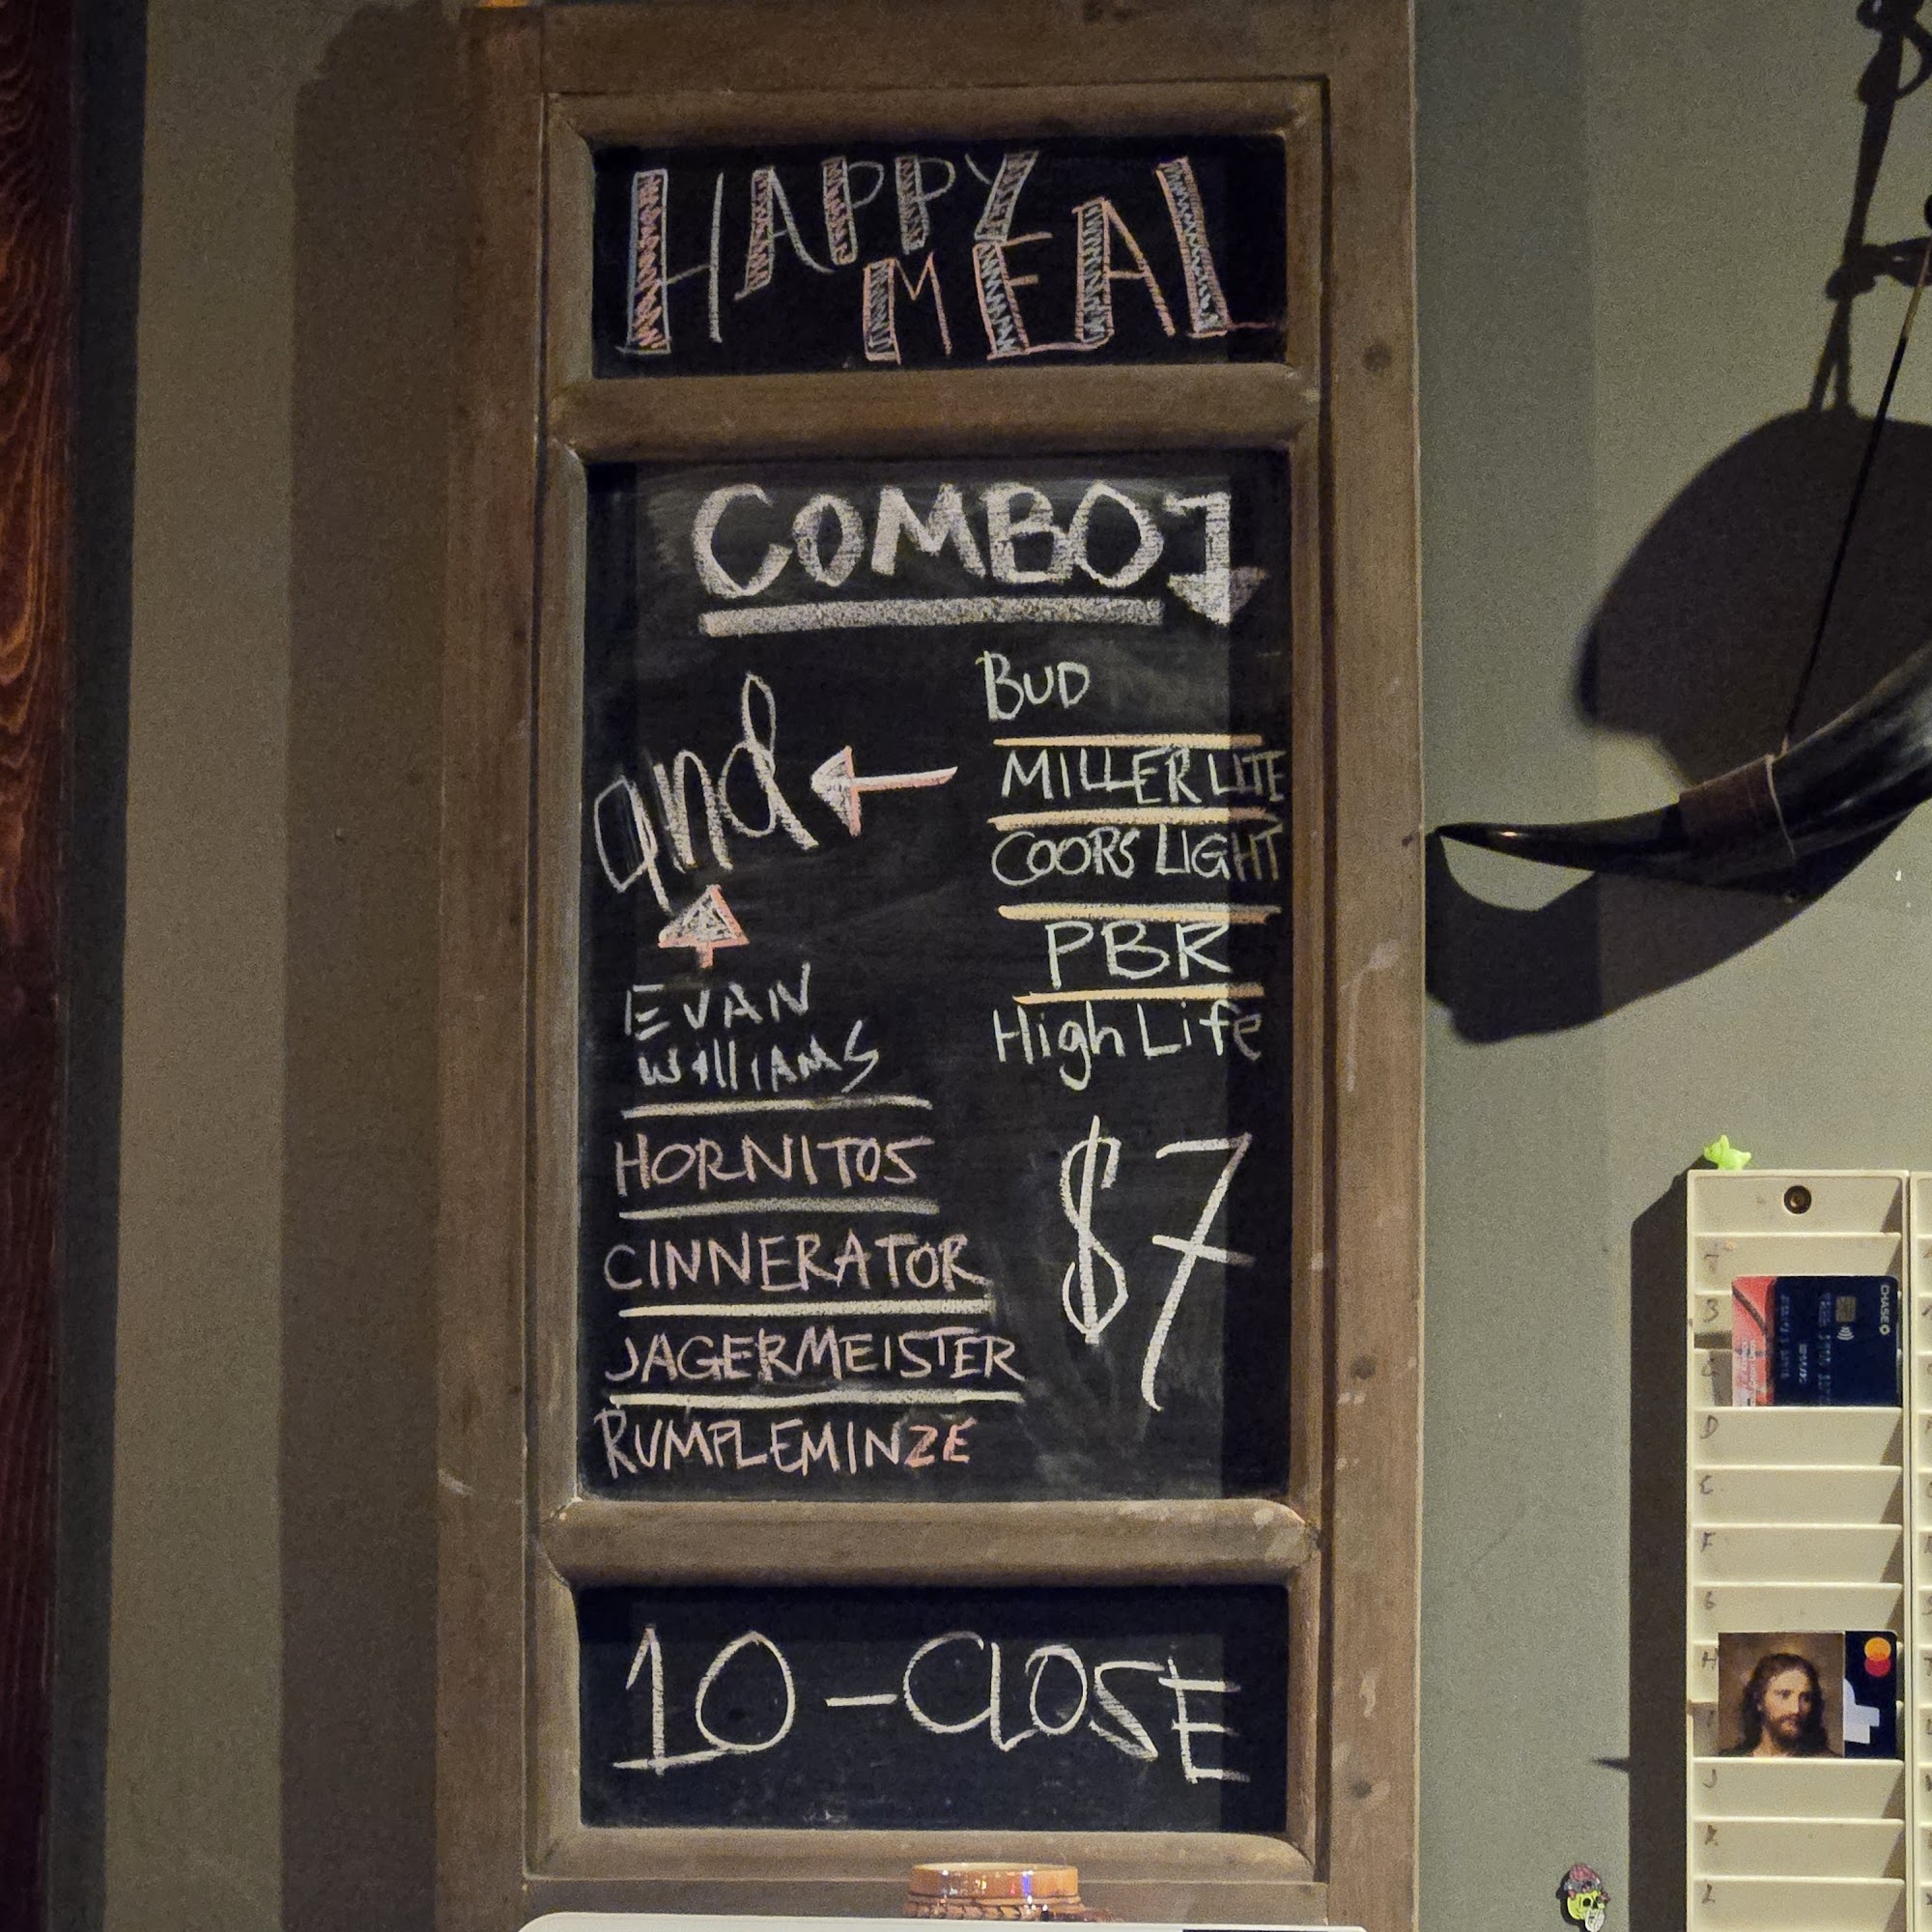 HAPPY
MEAL
COMBO
BUD
MILLER LITE
COORS LIGHT
PBR
High Life
and
EVAN
WIllIAMS
HORNITOS
CINNERATOR
JAGERMEISTER
RUMPLEMINZE
$7
10-CLOSE
CHASE
B
C
D
E
F
G
H
J
K
L